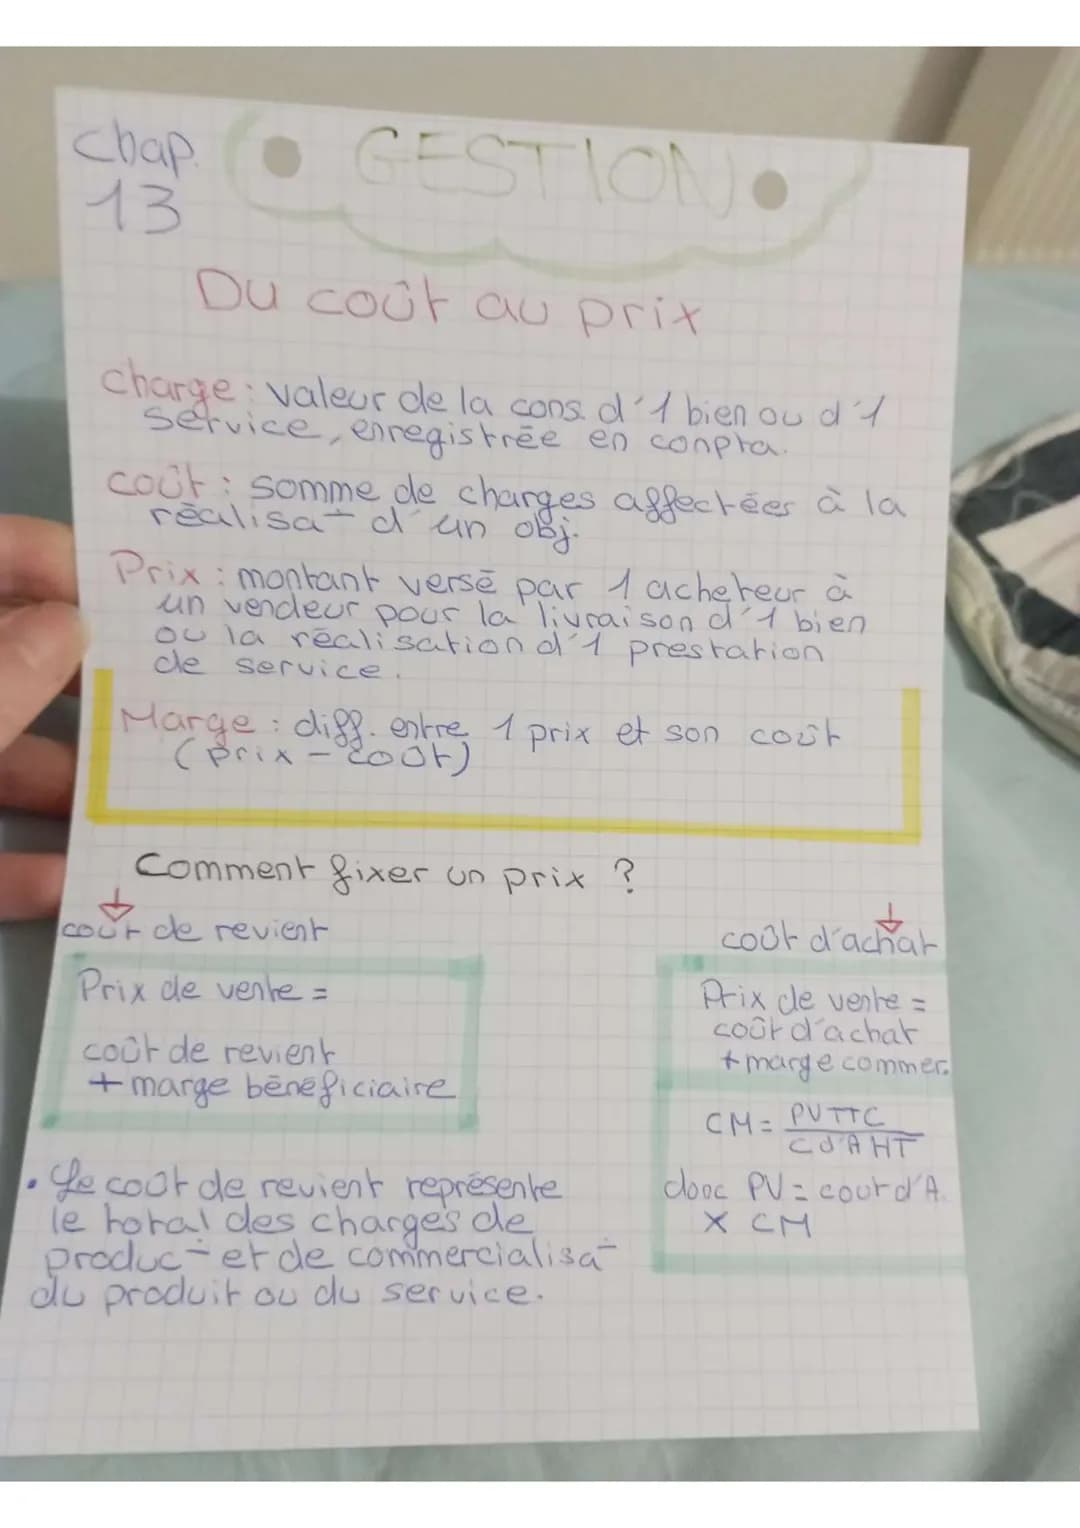 chap.
13
GESTION
Du coût au prix
charge : valeur de la cons. d'1 bien ou d'1
service, enregistrée en conpta.
coût : somme de charges affectées à la
réalisa° d'un obj.
Prix : montant versé par 1 acheteur à
un vendeur pour la livraison d'1 bien
ou la réalisation d'1 prestation
de service.
Marge : diff. entre 1 prix et son coût
(prix - coût)
Comment fixer un prix ?
coût de revient
Prix de vente =
coût de revient
+ marge bénéficiaire
• Le coût de revient représente
le total des charges de
produc° et de commercialisa°
du produit ou du service.
coût d'achat
Prix de vente =
coût d'achat
+ marge commer.
CM = PV TTC
C d'A HT
donc PV = coût d'A.
x CM